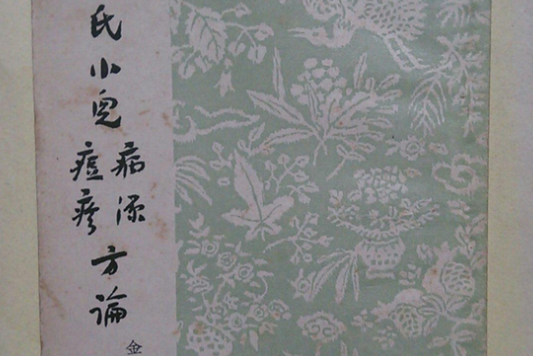 氏小兒病源方論
痘疹
金